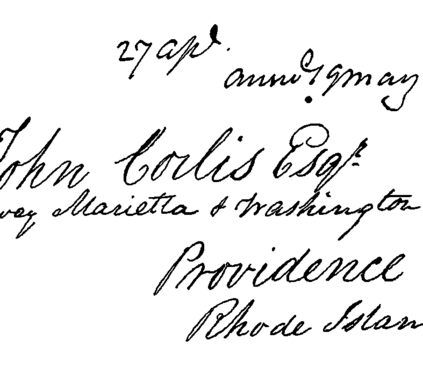 27 apl.
answd. 19 may
John Corlis Esqr.
way Marietta & Washington
Providence
Rhode Islan